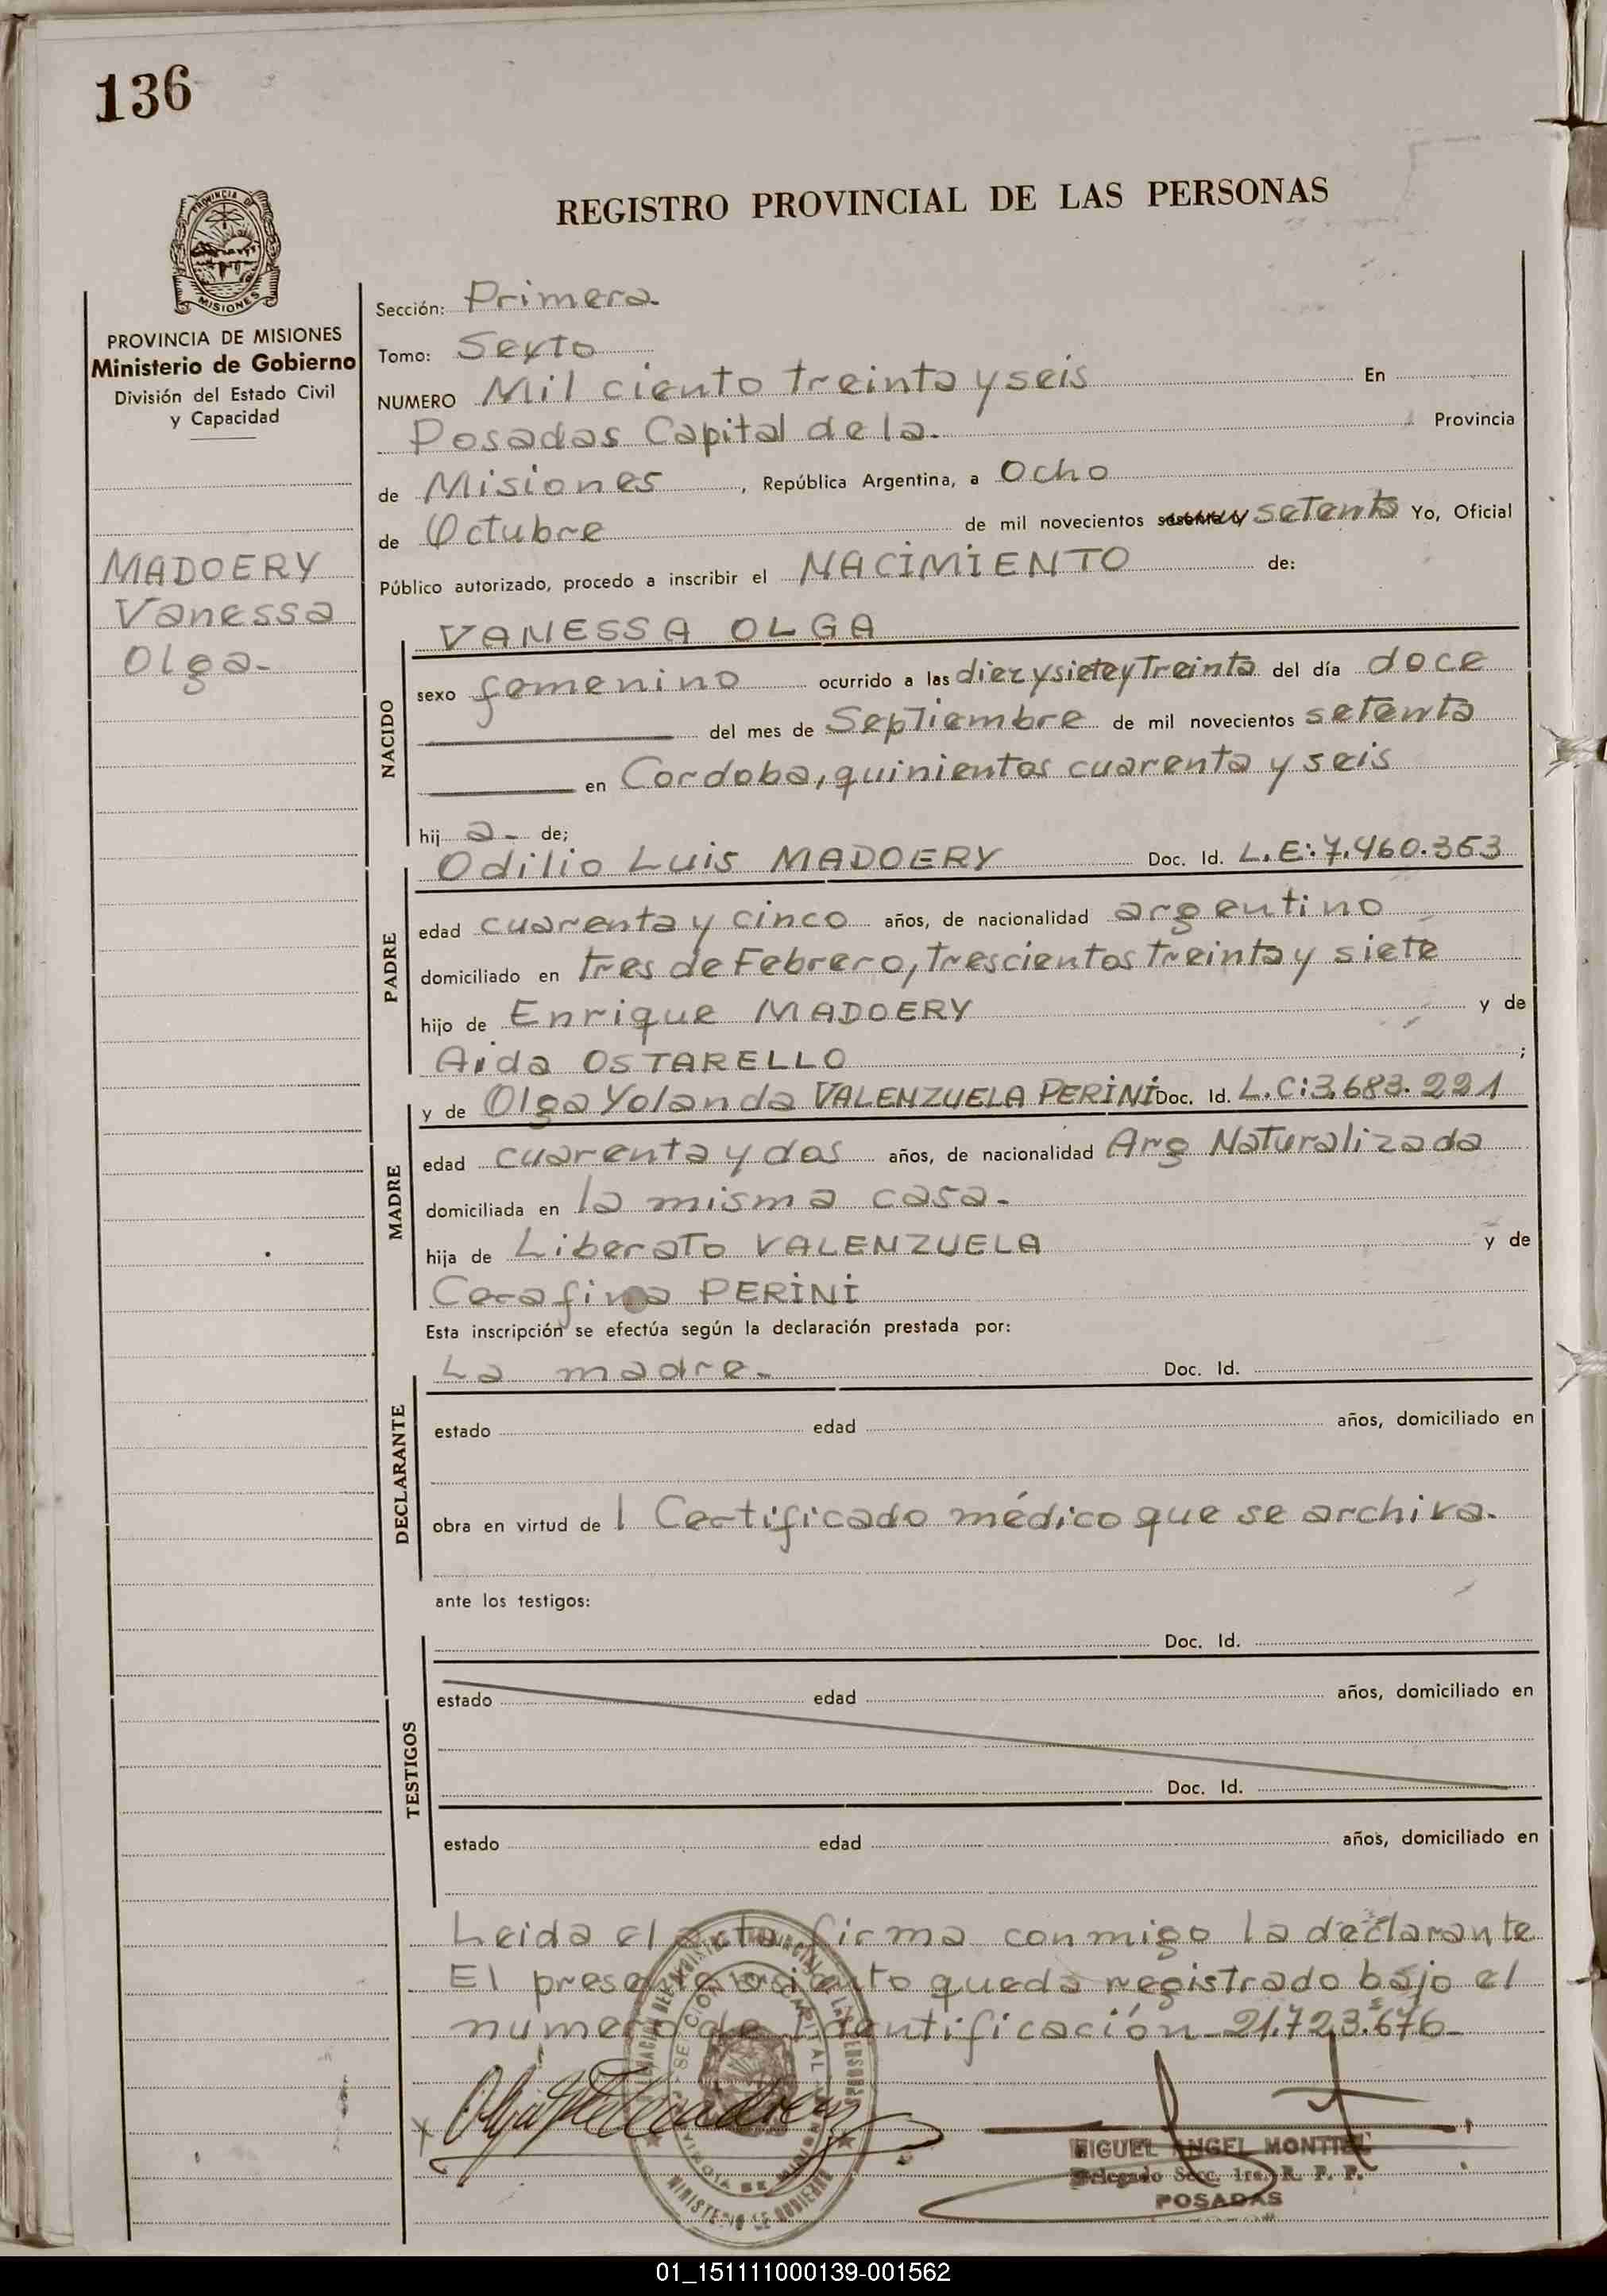 136
REGISTRO PROVINCIAL DE LAS PERSONAS
PROVINCIA DE
MISIONES
PROVINCIA DE MISIONES
Ministerio de Gobierno
División del Estado Civil
y Capacidad
MADOERY
Vanessa
Olga-
Sección: Primera.
Tomo: Sexto
NUMERO Mil ciento treinta y seis En
Posadas Capital de la. Provincia
de Misiones, República Argentina, a Ocho
de Octubre de mil novecientos setenta Yo, Oficial
Público autorizado, procedo a inscribir el NACIMIENTO de:
VANESSA OLGA
NACIDO
sexo femenino ocurrido a las diez y siete y Treinta del día doce
del mes de Septiembre de mil novecientos setenta
en Cordoba, quinientos cuarenta y seis
hij a- de;
Odilio Luis MADOERY Doc. Id. L.E:7.460.353
PADRE
edad cuarenta y cinco años, de nacionalidad argentino
domiciliado en tres de Febrero, Trescientos Treinta y siete
hijo de Enrique MADOERY y de
Aida OSTARELLO ;
y de Olga Yolanda VALENZUELA PERINI Doc. Id. L.C:3.683.221
MADRE
edad cuarenta y dos años, de nacionalidad Arg Naturalizada
domiciliada en la misma casa-
hija de Liberato VALENZUELA y de
Cerafina PERINI
Esta inscripción se efectúa según la declaración prestada por:
La madre- Doc. Id.
DECLARANTE
estado edad años, domiciliado en
obra en virtud de l Certificado médico que se archiva.
ante los testigos:
Doc. Id.
TESTIGOS
estado edad años, domiciliado en
Doc. Id.
estado edad años, domiciliado en
Leida el acta, firma conmigo la declarante
El presente asiento queda registrado bajo el
numero de Identificación 21.723.676-
MIGUEL ANGEL MONTIEL
Delegado Secc. 1ra. R. P. P.
POSADAS
MINISTERIO DE GOBIERNO
01_151111000139-001562